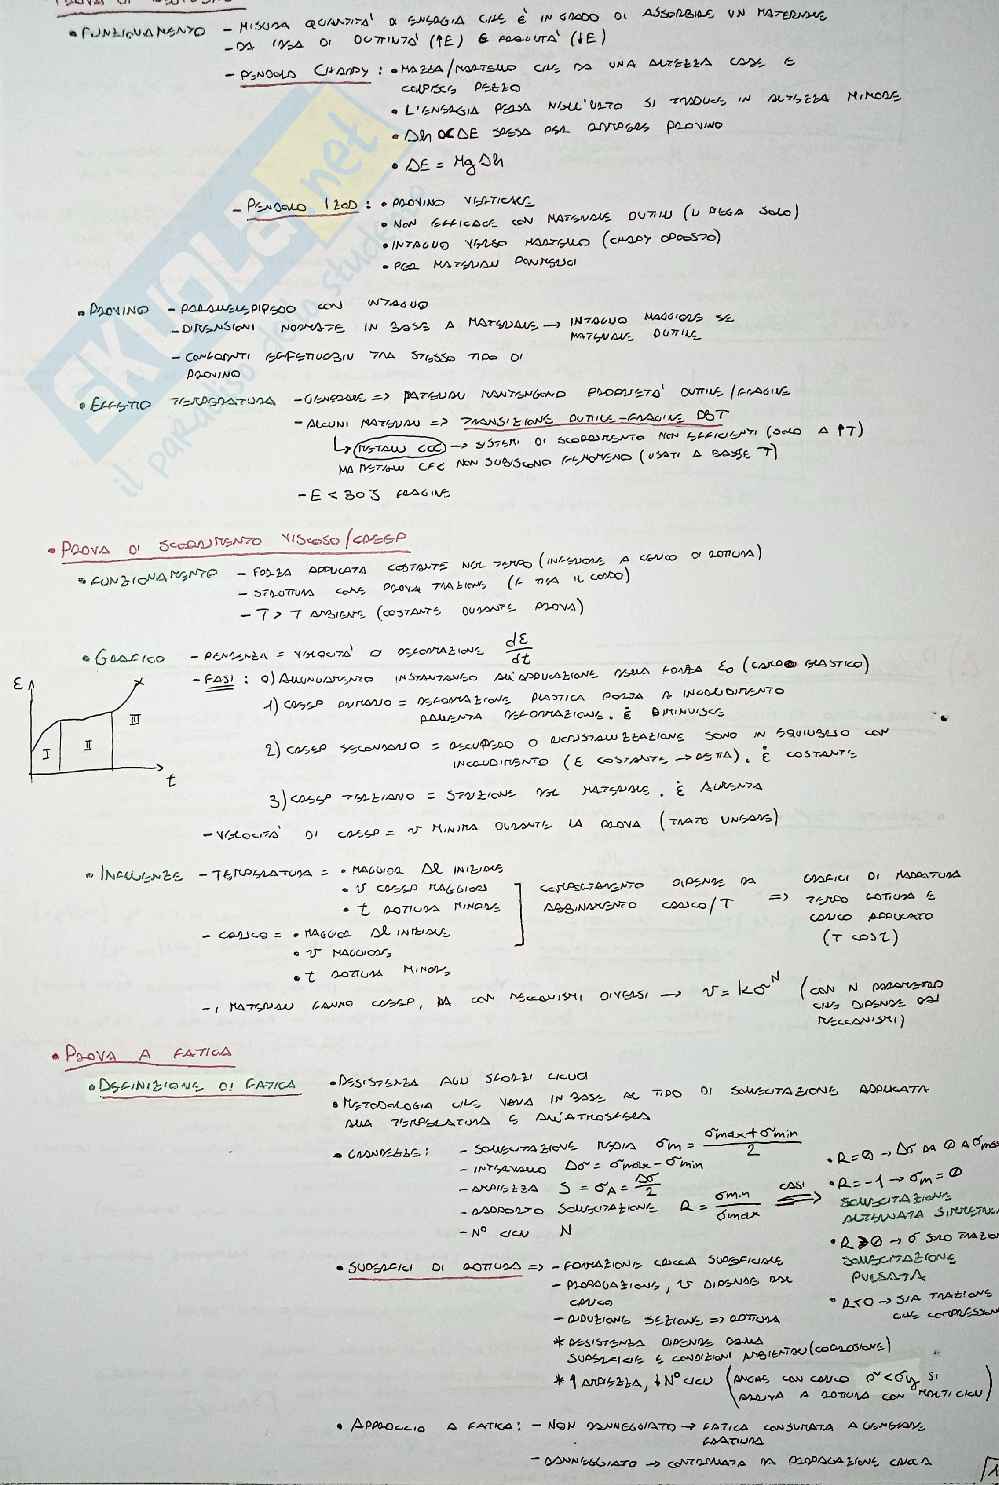 PROVA DI RESILIENZA
• FUNZIONAMENTO - MISURA QUANTITA' DI ENERGIA CHE È IN GRADO DI ASSORBIRE UN MATERIALE
- DA IDEA DI DUTTILITA' (↑E) E FRAGILITA' (↓E)
- PENDOLO CHARPY : • MAZZA/MARTELLO CHE DA UNA ALTEZZA CADE E
COLPISCE PEZZO
• L'ENERGIA PERSA NELL'URTO SI TRADUCE IN ALTEZZA MINORE
• Δh ∝ ΔE SPESA PER ROMPERE PROVINO
• ΔE = MgΔh
- PENDOLO IZOD : • PROVINO VERTICALE
• NON EFFICACE CON MATERIALE DUTTILI (LI PIEGA SOLO)
• INTAGLIO VERSO MARTELLO (CHARPY OPPOSTO)
• PER MATERIALI POLIMERICI
• PROVINO - PARALLELEPIPEDO CON INTAGLIO
- DIMENSIONI NORMATE IN BASE A MATERIALE → INTAGLIO MAGGIORE SE
MATERIALE DUTTILE
- CONFRONTI EFFETTUABILI TRA STESSO TIPO DI
PROVINO
• EFFETTO TEMPERATURA - GENERALE => MATERIALI MANTENGONO PROPRIETA' DUTTILE/FRAGILE
- ALCUNI MATERIALI => TRANSIZIONE DUTTILE-FRAGILE DBT
↳ METALLI CCC → SISTEMI DI SCORRIMENTO NON EFFICIENTI (SOLO A ↑T)
MA METALLI CFC NON SUBISCONO FENOMENO (USATI A BASSE T)
- E < 30J FRAGILE
• PROVA DI SCORRIMENTO VISCOSO/CREEP
• FUNZIONAMENTO - FORZA APPLICATA COSTANTE NEL TEMPO (INFERIORE A CARICO DI ROTTURA)
- STRUTTURA COME PROVA TRAZIONE (F TIRA IL CORPO)
- T > T AMBIENTE (COSTANTE DURANTE PROVA)
• GRAFICO - PENDENZA = VELOCITA' DI DEFORMAZIONE dε/dt
- FASI : 0) ALLUNGAMENTO INSTANTANEO ALL'APPLICAZIONE DELLA FORZA ε0 (CAMPO ELASTICO)
1) CREEP PRIMARIO = DEFORMAZIONE PLASTICA PORTA A INCRUDIMENTO
AUMENTA DEFORMAZIONE. ε̇ DIMINUISCE
2) CREEP SECONDARIO = RECUPERO O RICRISTALLIZZAZIONE SONO IN EQUILIBRIO CON
INCRUDIMENTO (ε COSTANTE → RETTA). ε̇ COSTANTE
3) CREEP TERZIARIO = STRIZIONE DEL MATERIALE. ε̇ AUMENTA
ε I II III t
- VELOCITA' DI CREEP = v MINIMA DURANTE LA PROVA (TRATTO LINEARE)
• INFLUENZE - TEMPERATURA = • MAGGIOR Δl INIZIALE
• v CREEP MAGGIORI
• t ROTTURA MINORE
- CARICO = • MAGGIOR Δl INIZIALE
• v MAGGIORE
• t ROTTURA MINORE
COMPORTAMENTO DIPENDE DA
ABBINAMENTO CARICO/T => GRAFICI DI
TEMPO ROTTURA E
CARICO APPLICATO
(T COST)
- I MATERIALI FANNO CREEP, MA CON MECCANISMI DIVERSI → v = kσ^N (CON N PARAMETRO
CHE DIPENDE DAI
MECCANISMI)
• PROVA A FATICA
• DEFINIZIONE DI FATICA • RESISTENZA AGLI SFORZI CICLICI
• METODOLOGIA CHE VARIA IN BASE AL TIPO DI SOLLECITAZIONE APPLICATA
ALLA TEMPERATURA E ALL'ATMOSFERA
• GRANDEZZE : - SOLLECITAZIONE MEDIA σm = σmax+σmin/2
- INTERVALLO Δσ = σmax-σmin
- AMPIEZZA S = σA = Δσ/2
- RAPPORTO SOLLECITAZIONE R = σmin/σmax CASI =>
- N° CICLI N
• R=0 → Δσ DA 0 A σmax
• R=-1 → σm=0
SOLLECITAZIONE
ALTERNATA SIMMETRICA
• R>0 → σ SOLO TRAZIONE
SOLLECITAZIONE
PULSATA
• R<0 → SIA TRAZIONE
CHE COMPRESSIONE
• SUPERFICI DI ROTTURA => - FORMAZIONE CRICCA SUPERFICIALE
- PROPAGAZIONE, v DIPENDE DAL
CARICO
- RIDUZIONE SEZIONE => ROTTURA
* RESISTENZA DIPENDE DALLA
SUPERFICIE E CONDIZIONI AMBIENTALI (CORROSIONE)
* ↑ AMPIEZZA, ↓ N° CICLI (ANCHE CON CARICO σ<σy SI
ARRIVA A ROTTURA CON MOLTI CICLI)
• APPROCCIO A FATICA : - NON DANNEGGIATO → FATICA CONSUMATA A GENERARE
FRATTURA
- DANNEGGIATO → CONTROLLATA DA PROPAGAZIONE CRICCA
SKUOLA.net
il paradiso dello studente